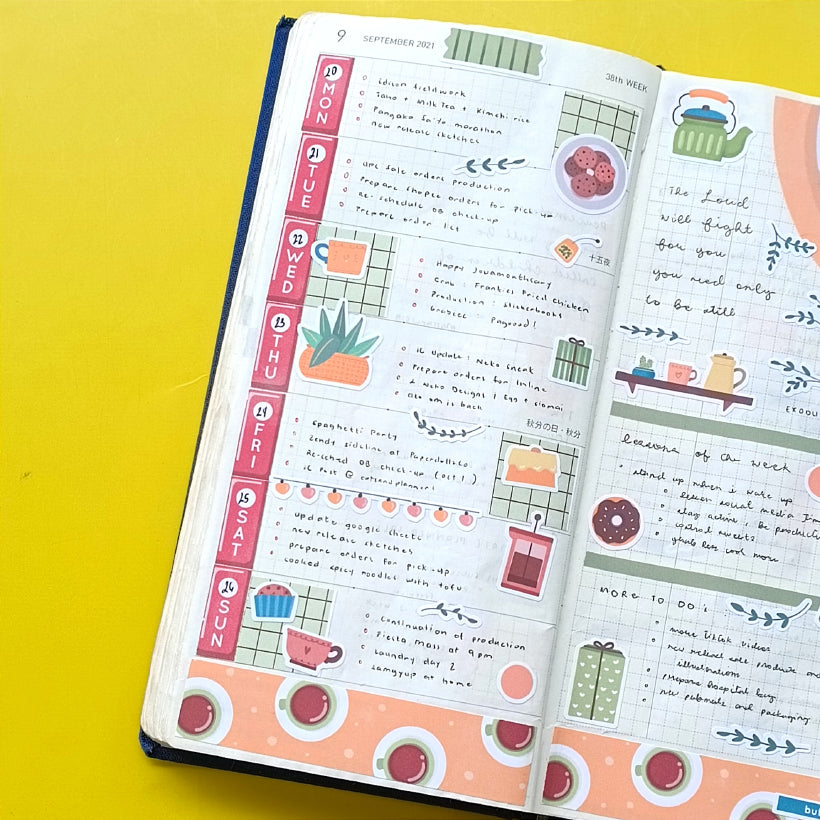 9 SEPTEMBER 2021
38th WEEK
20
MON
Edison fieldwork
Taho + Milk Tea + Kimchi rice
Pangako Sa'yo marathon
New release sketches
21
TUE
sale orders production
Prepare shopee orders for pick-up
Re-schedule OB check-up
Prepare order list
22
WED
十五夜
Happy
Grab : Frankies Fried Chicken
Production : Stickerbooks
23
THU
IG Update : Neko sneak
Prepare orders for Inline
2 Neko Designs | Egg + siomai
is back
24
FRI
秋分の日・秋分
Spaghetti Party
sideline at
Re-sched OB check-up (oct 1)
IG Post @
25
SAT
update google sheets
new release sketches
prepare orders for pick-up
cooked spicy noodles with tofu
26
SUN
Continuation of production
Fiesta mass at 9 pm
Laundry day 2
Samgyup at home
The Lord
will fight
for you
you need only
to be still
EXODU
lessons of the week
stand up when I wake up
lessen social media
stay active & be producti
control sweets
more
MORE TO DO:
make TikTok videos
new products and
illustrations
prepare hospital bag
and packaging
but